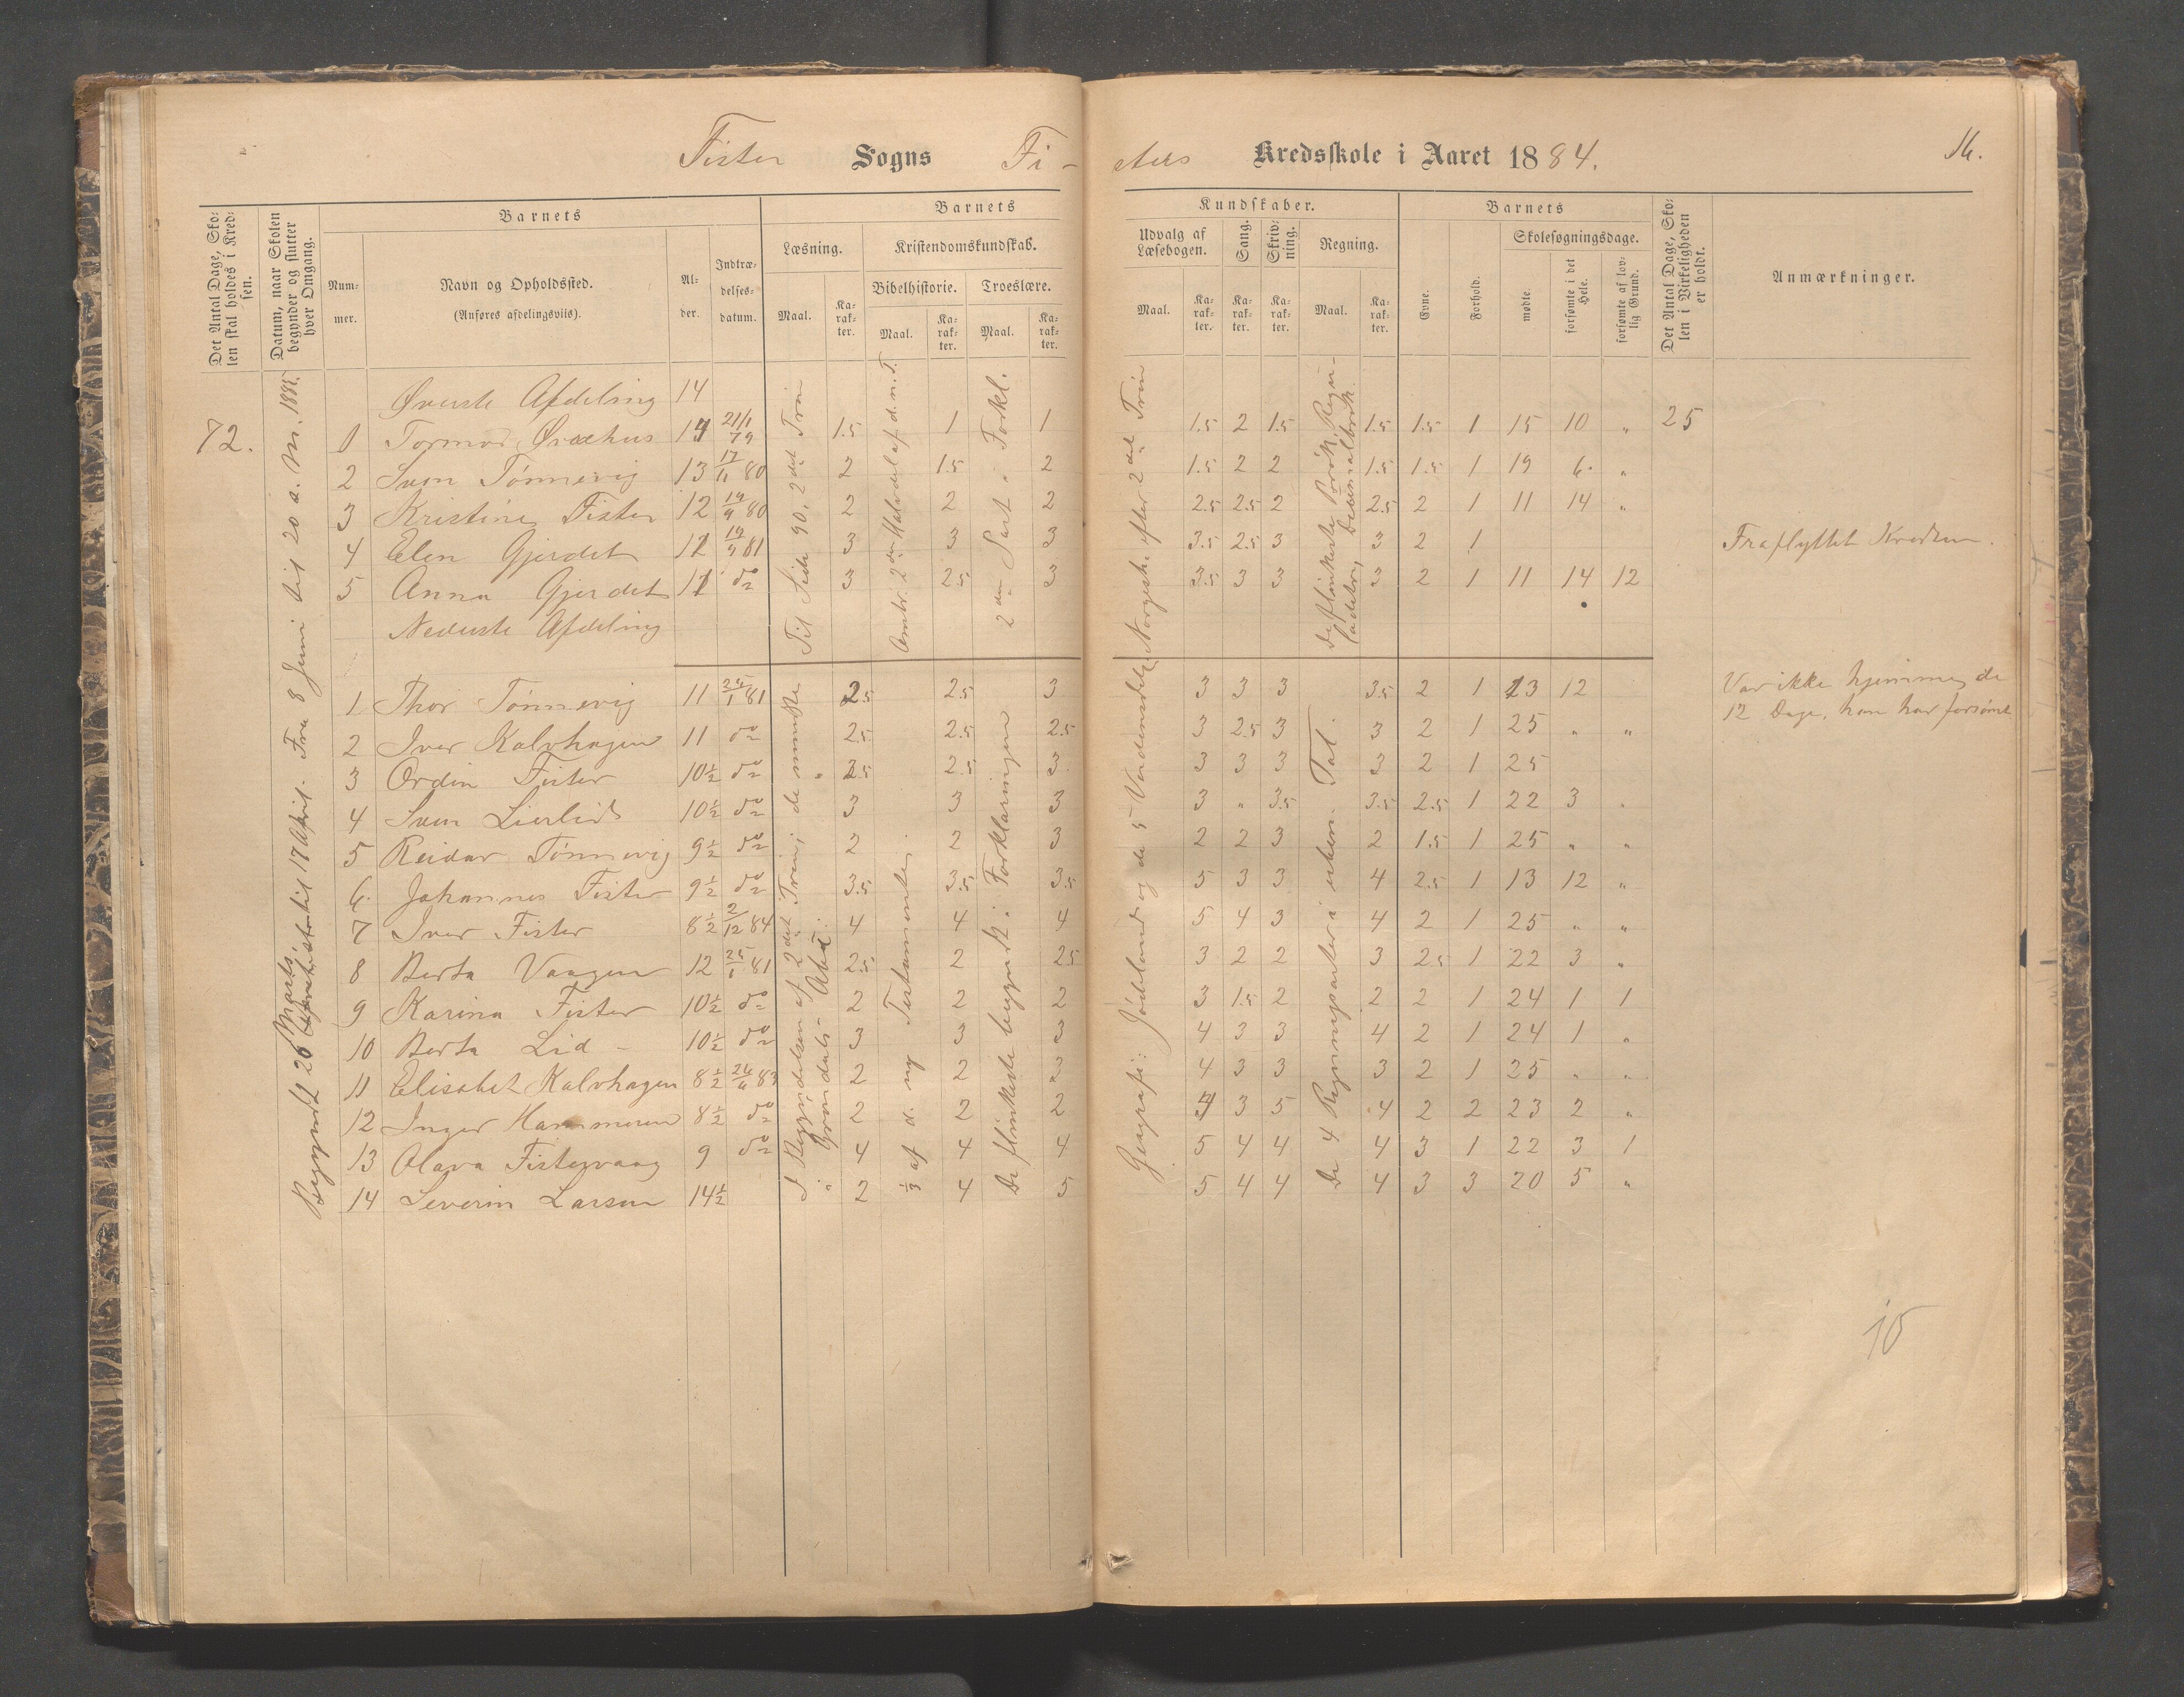 Fister Sogns Fi-
sters Kredsskole i Aaret 1884.
16.
Det Antal Dage, Skolen skal holdes i Kredsen.
Datum, naar Skolen begynder og slutter hver Omgang.
Barnets
Nummer.
Navn og Opholdssted.
(Anføres afdelingsvis).
Alder.
Indtrædelsesdatum.
Barnets
Læsning.
Maal.
Karakter.
Kristendomskundskab.
Bibelhistorie.
Maal.
Karakter.
Troeslære.
Maal.
Karakter.
Kundskaber.
Udvalg af Læsebogen.
Maal.
Karakter.
Sang.
Karakter.
Skrivning.
Karakter.
Regning.
Maal.
Karakter.
Barnets
Evne.
Forhold.
Skolesøgningsdage.
mødte.
forsømte i det Hele.
forsømte af lovlig Grund.
Det Antal Dage, Skolen i Virkeligheden er holdt.
Anmærkninger.
Øverste Afdeling 14
72. Tormod 14 21/1 79 1.5 1 1 1.5 2 1.5 1.5 1.5 1 15 10 " 25
2 Sven Tønnevig 13 80 2 1.5 2 1.5 2 2 1.5 1.5 1 19 6 "
3 Kristine Fister 12 80 2 2 2 2.5 2.5 2 2.5 2 1 11 14 "
4 Elen Gjerdet 81 3 3 3 3.5 2.5 3 3 2 1 Fraflyttet Kredsen.
5 Anna Gjerdet do 3 2.5 3 3.5 3 3 3 2 1 11 14 12
Nederste Afdeling
1 Thor Tønnevig 11 81 2.5 2.5 3 3 3 3 3.5 2 1 13 12 Var ikke hjemme de
12 Dage, han har forsømt
2 Iver Kalvhagen 11 do 2.5 2.5 2.5 3 2.5 3 3 2 1 25 " "
3 Ordin Fister 10½ do 2.5 2.5 3 3 3 3 3 2 1 25
4 Sven Lierlid 10½ do 3 3 3 3 " 3.5 3.5 2.5 1 22 3 "
5 Reidar Tønnevig 9½ do 2 2 3 2 2 3 2 1.5 1 25 " "
6 Johannes Fister 9½ do 3.5 3.5 3.5 5 3 3 4 2.5 1 13 12 "
7 Iver Fister 8½ 2/12 84 4 4 4 5 4 3 4 2 1 25 " "
8 Berta Vaagen 12 81 2.5 2 2.5 3 2 2 3 2.5 1 22 3 "
9 Karina Fister 10½ do 2 2 2 3 1.5 2 2 2 1 24 1 1
10 Berta Lid 10½ do 3 3 3 4 3 3 4 2 1 24 1 "
11 Elisabet Kalvhagen 8½ 83 2 2 2 4 3 3 3 2 1 25 " "
12 Inger Hammeren 8½ do 2 2 2 3 5 4 2 2 23 2 "
13 Olava Fistervaag 9 do 4 4 4 5 4 4 4 3 1 22 3 1
14 Severin Larsen 14½ 2 4 5 5 4 4 4 3 3 20 5 "
Fra 8 Juni til 20 a. M. 1885.
Begyndt 26 Marts til 17 April.
Til Side 90, 2det Trin
2den Halvdel af d. n. T.
2den Part i Forkl.
Norgesh. efter 2det Trin
de flinkeste
Decimalbrøk
I Begyndelsen af 2det Trin; de mindste
1/3 af d. ny Testamente.
De flinkeste begyndt i Forklaringen
Geografi: Jødeland og de 5 Verdensdele
De 4 Regningsarter i enken. Tal.
10